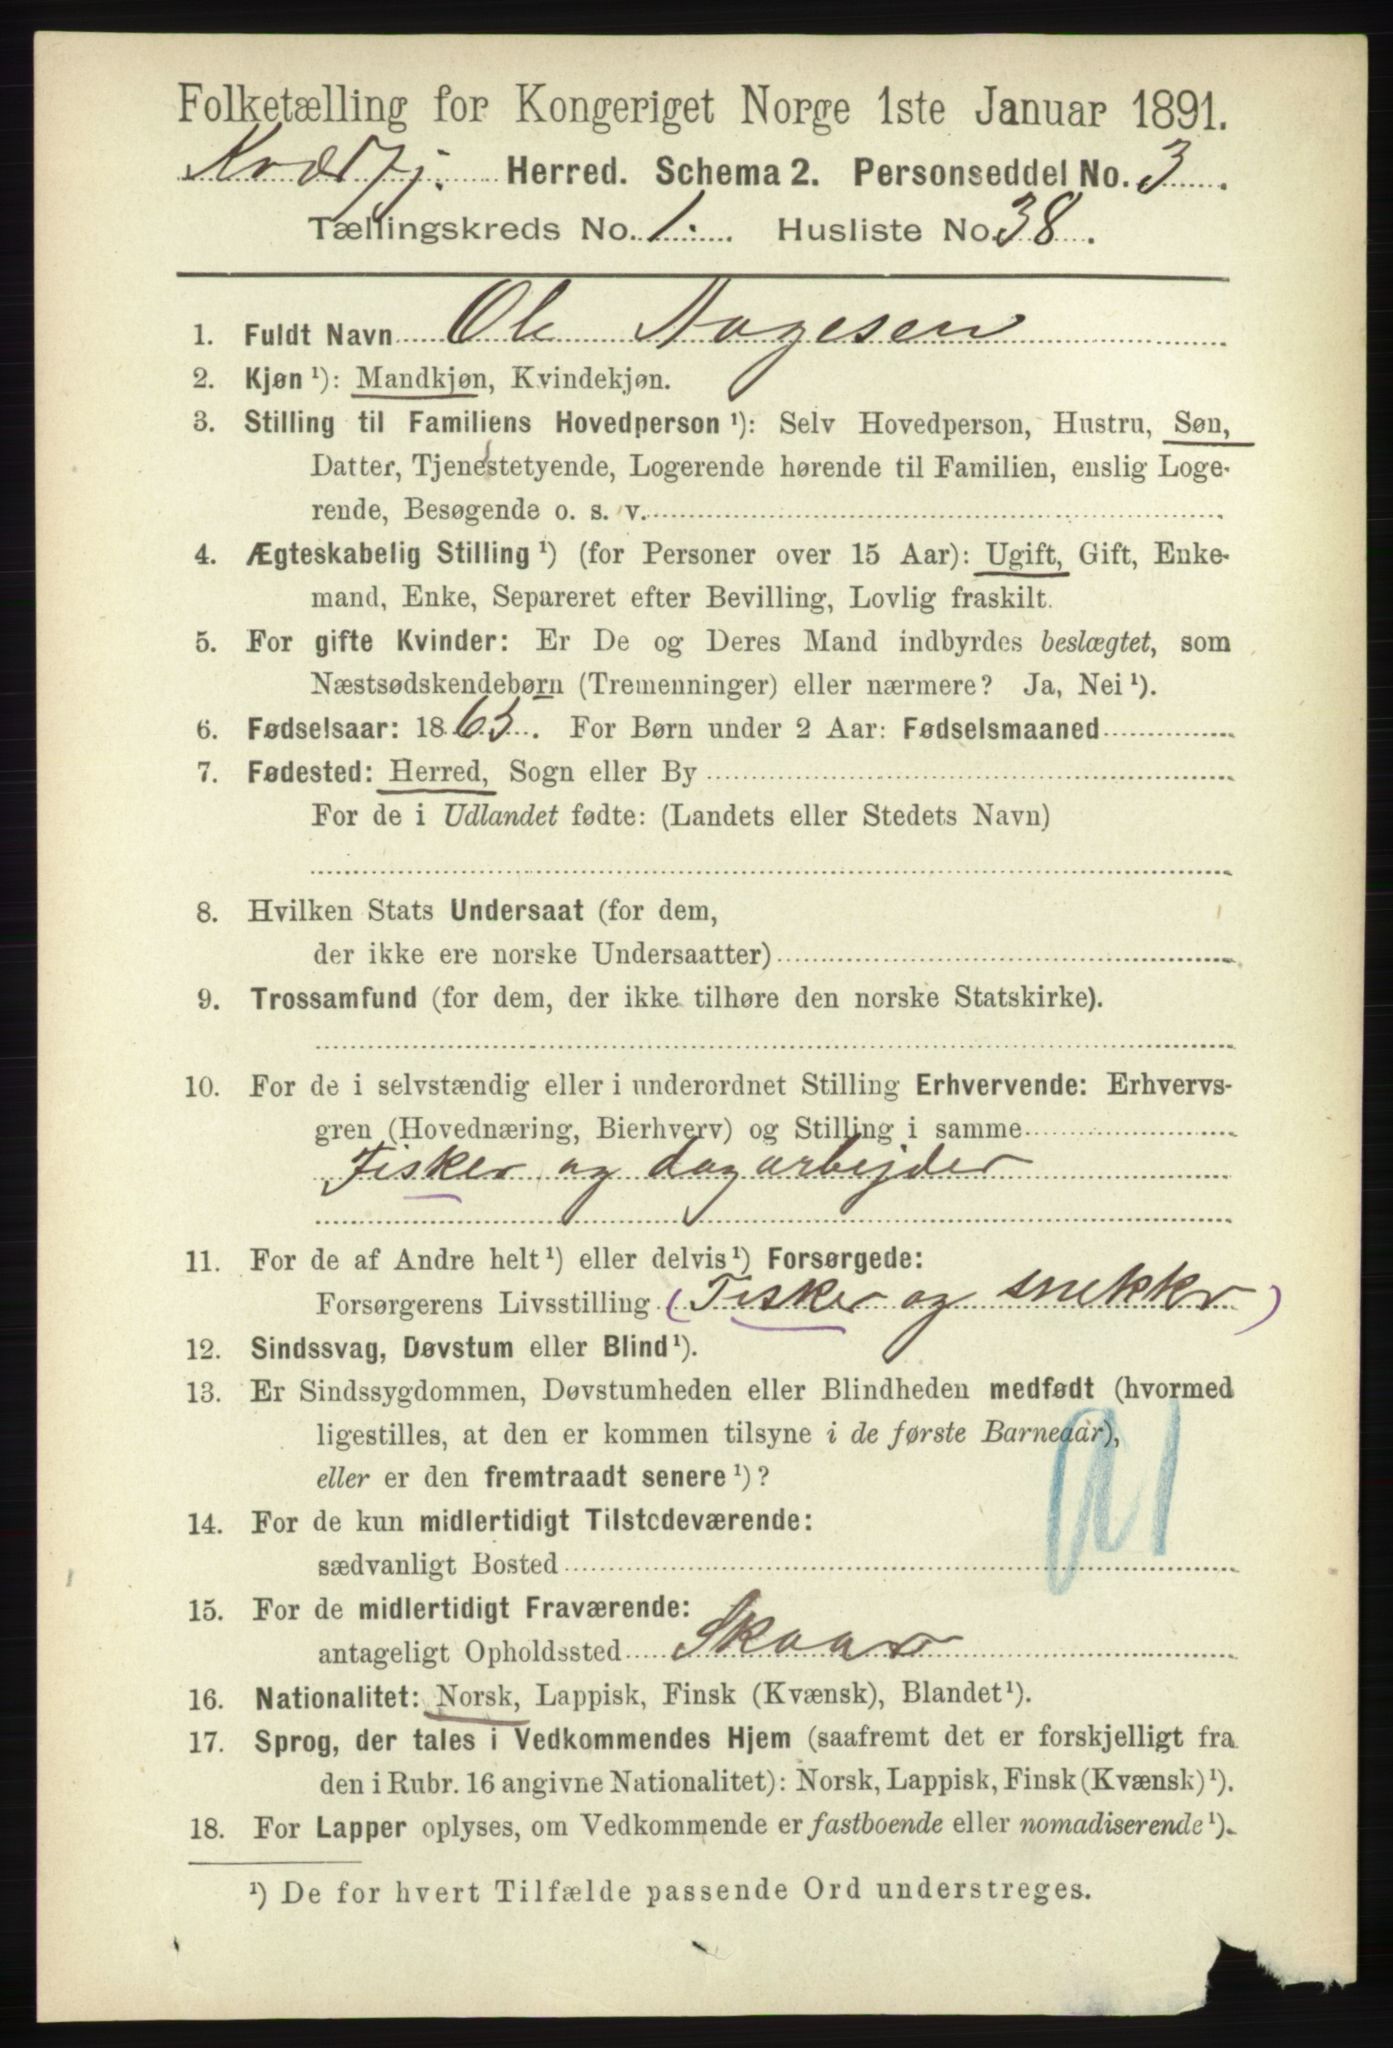 Folketælling for Kongeriget Norge 1ste Januar 1891.
Kvæfj. Herred. Schema 2. Personseddel No. 3.
Tællingskreds No. 1. Husliste No. 38.
1. Fuldt Navn Ole Aagesen
2. Kjøn ¹): Mandkjøn, Kvindekjøn.
3. Stilling til Familiens Hovedperson ¹): Selv Hovedperson, Hustru, Søn,
Datter, Tjenestetyende, Logerende hørende til Familien, enslig Loge-
rende, Besøgende o. s. v.
4. Ægteskabelig Stilling ¹) (for Personer over 15 Aar): Ugift, Gift, Enke-
mand, Enke, Separeret efter Bevilling, Lovlig fraskilt.
5. For gifte Kvinder: Er De og Deres Mand indbyrdes beslægtet, som
Næstsødskendebørn (Tremenninger) eller nærmere? Ja, Nei ¹).
6. Fødselsaar: 1865. For Børn under 2 Aar: Fødselsmaaned
7. Fødested: Herred, Sogn eller By
For de i Udlandet fødte: (Landets eller Stedets Navn)
8. Hvilken Stats Undersaat (for dem,
der ikke ere norske Undersaatter)
9. Trossamfund (for dem, der ikke tilhøre den norske Statskirke).
10. For de i selvstændig eller i underordnet Stilling Erhvervende: Erhvervs-
gren (Hovednæring, Bierhverv) og Stilling i samme
Fisker og dagarbejder
11. For de af Andre helt ¹) eller delvis ¹) Forsørgede:
Forsørgerens Livsstilling (Fisker og snekkr)
12. Sindssvag, Døvstum eller Blind ¹).
13. Er Sindssygdommen, Døvstumheden eller Blindheden medfødt (hvormed
ligestilles, at den er kommen tilsyne i de første Barneaar),
eller er den fremtraadt senere ¹)?
14. For de kun midlertidigt Tilstedeværende:
sædvanligt Bosted
15. For de midlertidigt Fraværende:
antageligt Opholdssted Skaar
16. Nationalitet: Norsk, Lappisk, Finsk (Kvænsk), Blandet ¹).
17. Sprog, der tales i Vedkommendes Hjem (saafremt det er forskjelligt fra
den i Rubr. 16 angivne Nationalitet): Norsk, Lappisk, Finsk (Kvænsk) ¹).
18. For Lapper oplyses, om Vedkommende er fastboende eller nomadiserende ¹).
¹) De for hvert Tilfælde passende Ord understreges.